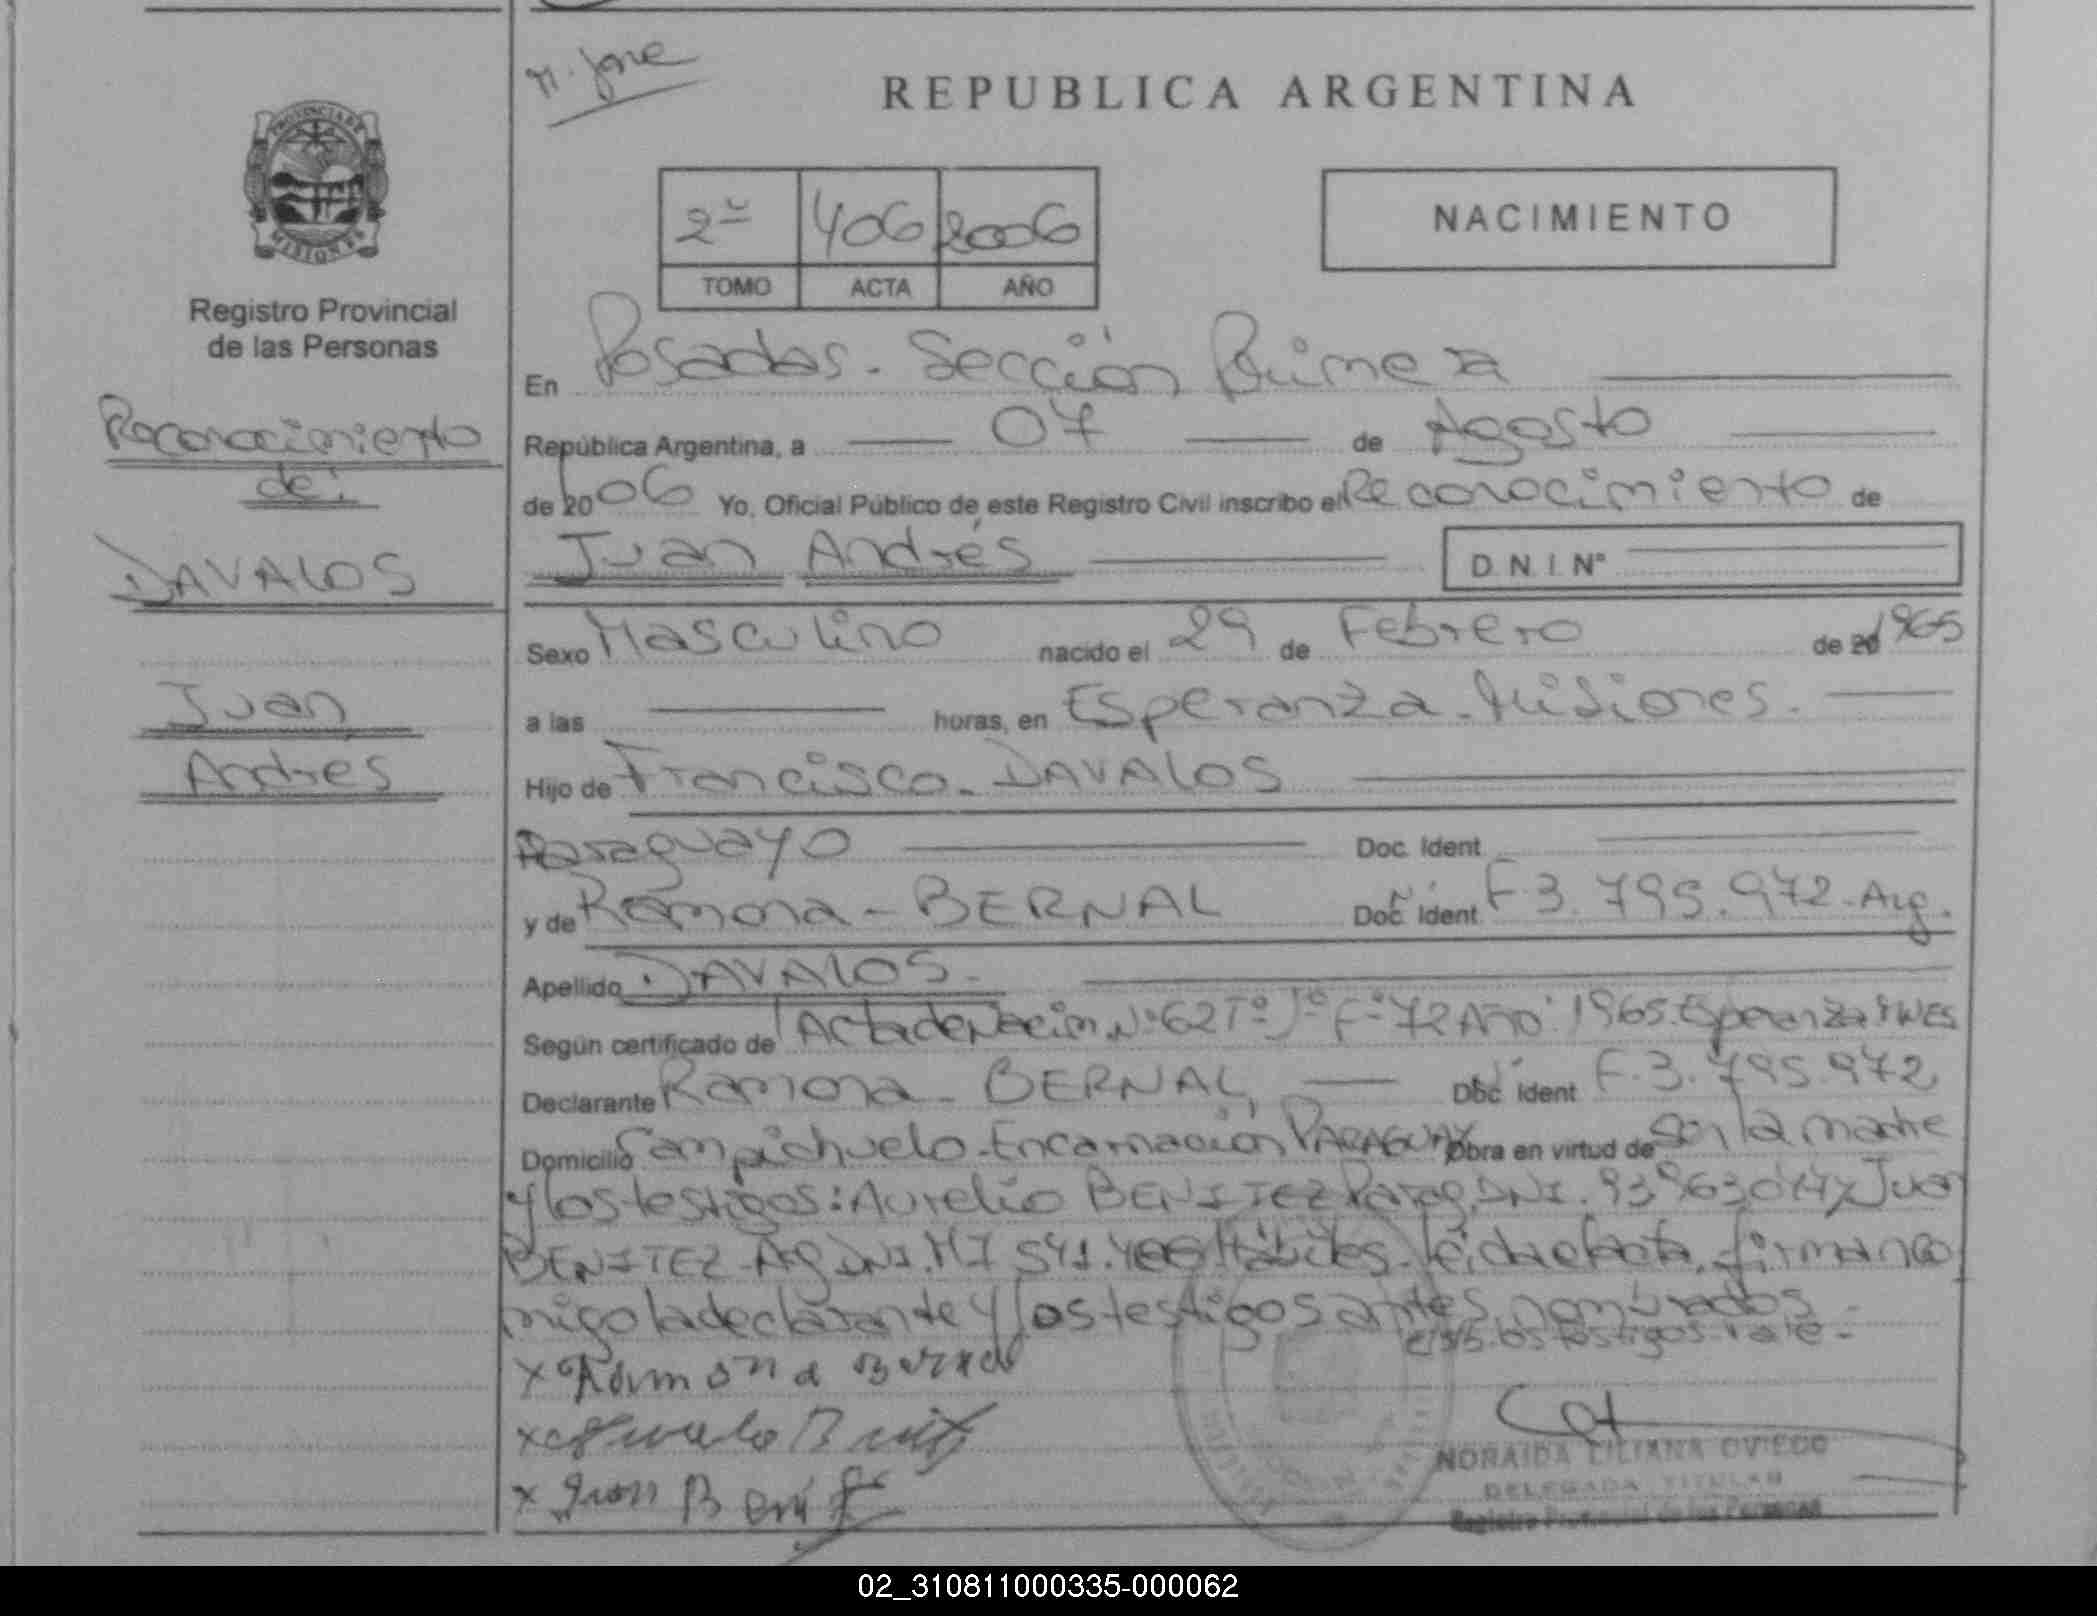 M. José
REPUBLICA ARGENTINA
PROVINCIA DE
MISIONES
2º 406 2006
TOMO ACTA AÑO
NACIMIENTO
Registro Provincial
de las Personas
Reconocimiento
de:
DAVALOS
Juan
Andres
En Posadas. Sección Primera
República Argentina, a 07 de Agosto
de 2006 Yo, Oficial Público de este Registro Civil inscribo el Reconocimiento de
Juan Andrés D.N.I. Nº
Sexo Masculino nacido el 29 de Febrero de 1965
a las horas, en Esperanza. Misiones.
Hijo de Francisco. DAVALOS
Paraguayo Doc. Ident
y de Ramona - BERNAL Doc. Ident F. 3.795.972. Arg.
Apellido DAVALOS.
Según certificado de Acta de Nacim. Nº 62 Tº 1º Fº 72 Año 1965. Esperanza
Declarante Ramona - BERNAL Doc. Ident F. 3.795.972
Domicilio Campichuelo - Encarnación PARAGUAY Obra en virtud de Ser la madre
y los testigos: Aurelio BENITEZ Parag. DNI. y Juan
BENITEZ Arg DNI. M7 541. Hábiles. leída el acta, firman co
migo la declarante y los testigos antes nombrados
los testigos. vale.
x Ramona Bernal
x Benitez
x Juan Benitez
NORAIDA LILIANA OVIEDO
DELEGADA TITULAR
Registro Provincial de las Personas
02_310811000335-000062